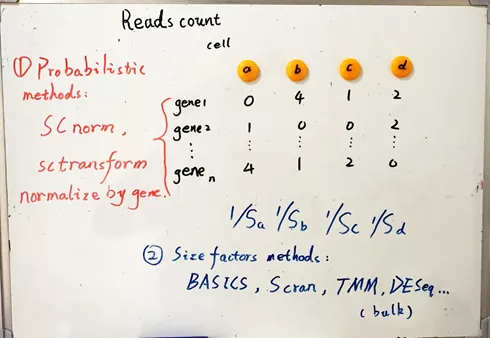 Reads count
cell
a b c d
① Probabilistic
methods:
SCnorm,
sctransform
normalize by gene.
gene1 0 4 1 2
gene2 1 0 0 2
⋮ ⋮ ⋮ ⋮ ⋮
genen 4 1 2 0
1/Sa 1/Sb 1/Sc 1/Sd
② Size factors methods:
BASICS, Scran, TMM, DESeq...
(bulk)